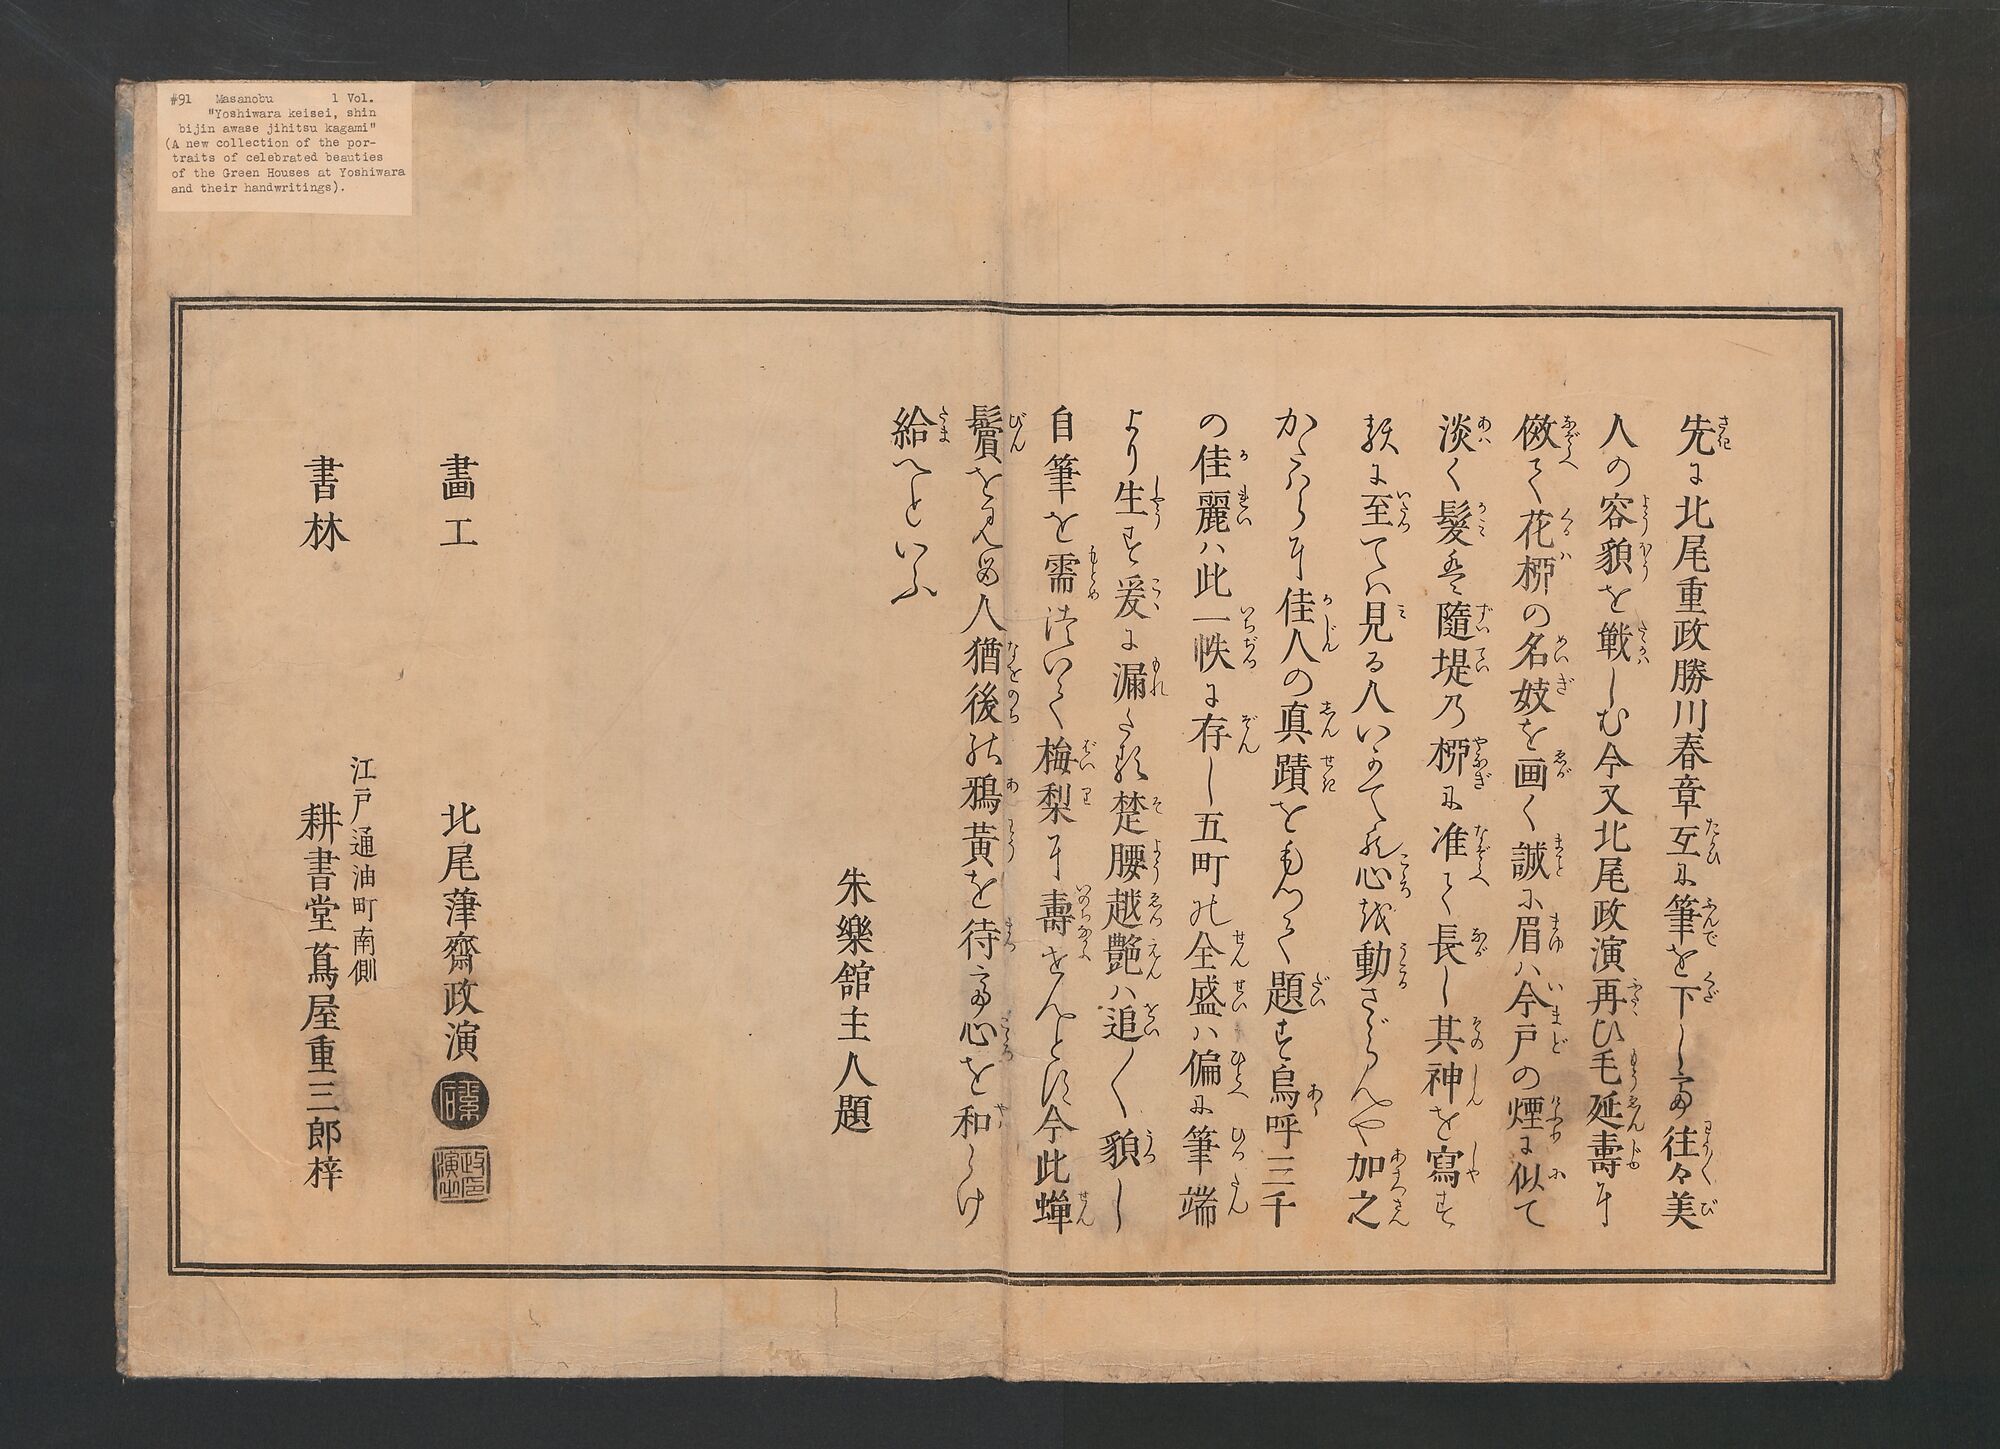 #91 Masanobu 1 Vol.
"Yoshiwara keisei, shin
bijin awase jihitsu kagami"
(A new collection of the por-
traits of celebrated beauties
of the Green Houses at Yoshiwara
and their handwritings).
先に北尾重政勝川春章互に筆を下して往々美
人の容貌を戦しむ今又北尾政演再ひ毛延壽に
倣て花柳の名妓を画く誠に眉ハ今戸の煙に似て
淡く髮は隨堤乃柳に准て長し其神を寫す
至てハ見る人いかてか心を動さゞらんや加之
かたハらに佳人の真蹟をもつて題す烏呼三千
の佳麗ハ此一帙に存し五町の全盛ハ偏に筆端
より生す爰に漏たる楚腰越艶ハ追〱貌し
自筆を需ついて梅梨に壽せんとす今此蟬
鬢を見る人猶後の鴉黄を待て心を和らけ
給へといふ
朱樂舘主人題
畫工
北尾葏齋政演
政演之印
書林
江戸通油町南側
耕書堂蔦屋重三郎梓